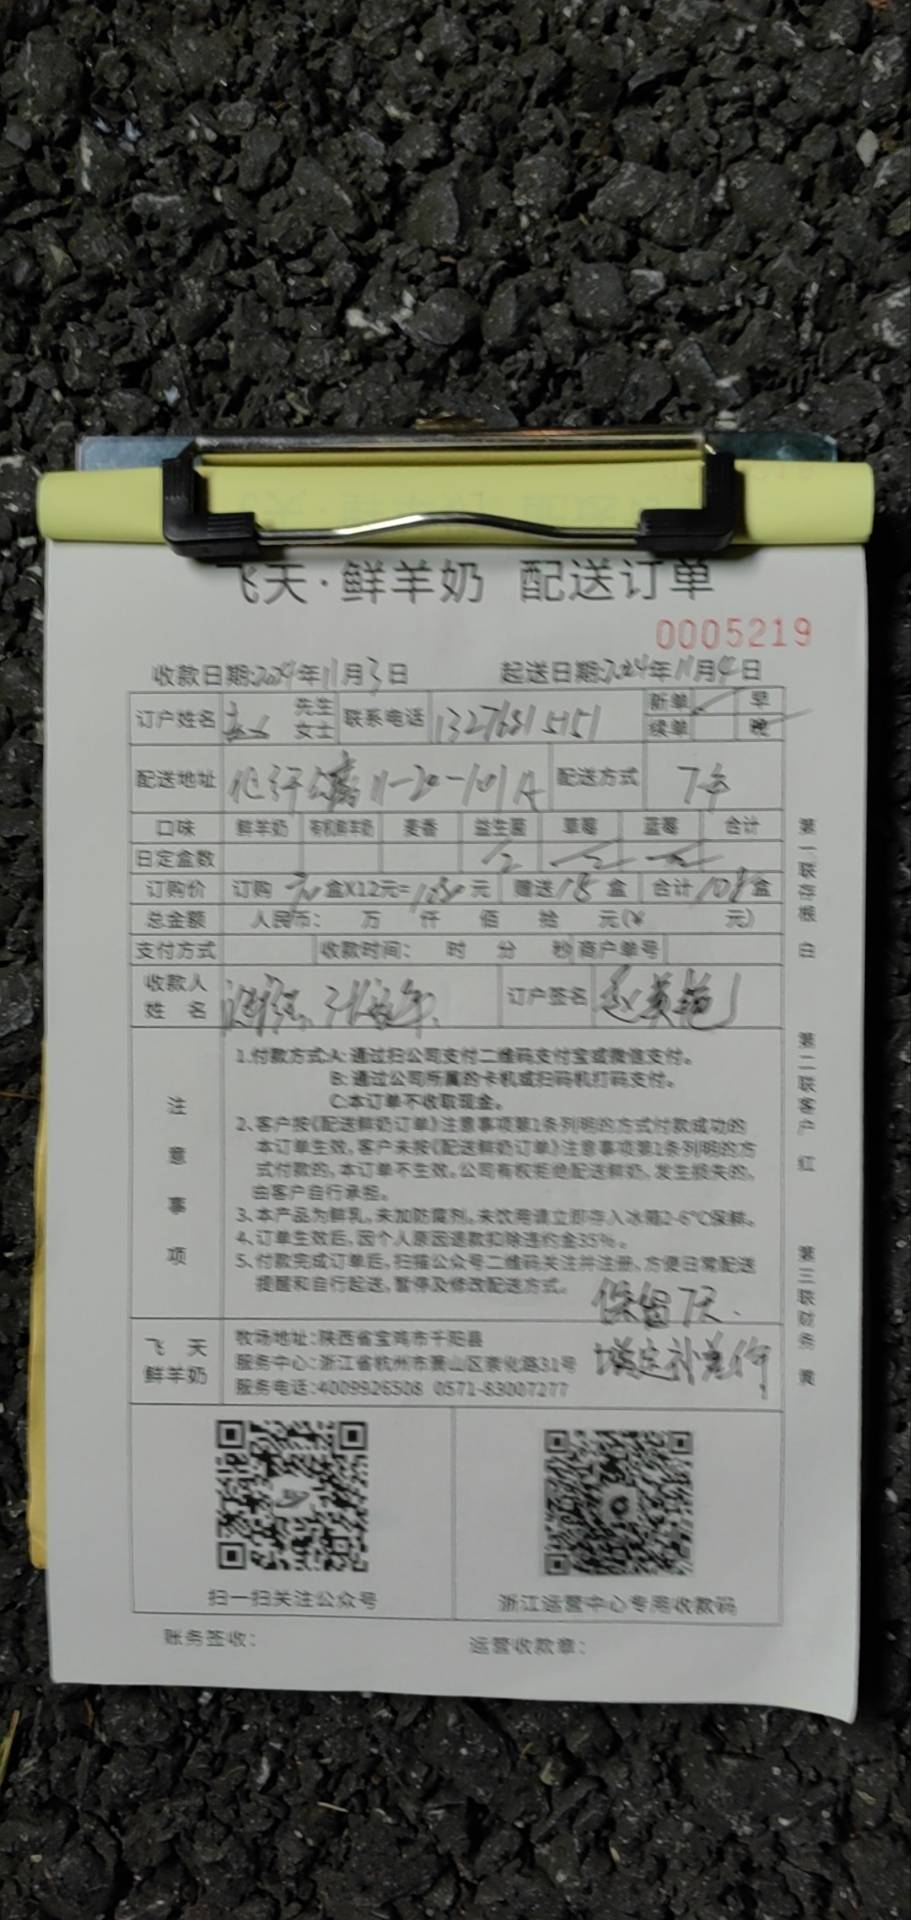 飞天·鲜羊奶 配送订单
0005219
收款日期:2024年11月3日 起送日期:2024年11月4日
订户姓名 先生 女士 联系电话 新单 早 续单 晚
配送地址 11-20-101 配送方式
口味 鲜羊奶 有机鲜羊奶 麦香 益生菌 草莓 蓝莓 合计
日定盒数 2
订购价 订购 盒X12元= 元 赠送18盒 合计108盒
总金额 人民币: 万 仟 佰 拾 元(¥ 元)
支付方式 收款时间: 时 分 秒 商户单号
收款人姓名 订户签名
注意事项
1.付款方式:A:通过扫公司支付二维码支付宝或微信支付。
B:通过公司所属的卡机或扫码机打码支付。
C:本订单不收取现金。
2、客户按《配送鲜奶订单》注意事项第1条列明的方式付款成功的
本订单生效,客户未按《配送鲜奶订单》注意事项第1条列明的方
式付款的,本订单不生效。公司有权拒绝配送鲜奶,发生损失的,
由客户自行承担。
3、本产品为鲜乳,未加防腐剂,未饮用请立即存入冰箱2-6°C保鲜。
4、订单生效后,因个人原因退款扣除违约金35%。
5、付款完成订单后,扫描公众号二维码关注并注册,方便日常配送
提醒和自行起送,暂停及修改配送方式。
保留7天.
飞天鲜羊奶
牧场地址:陕西省宝鸡市千阳县
服务中心:浙江省杭州市萧山区崇化路31号
服务电话:4009926508 0571-83007277
扫一扫关注公众号 浙江运营中心专用收款码
账务签收: 运营收款章:
第一联存根 白
第二联客户 红
第三联财务 黄